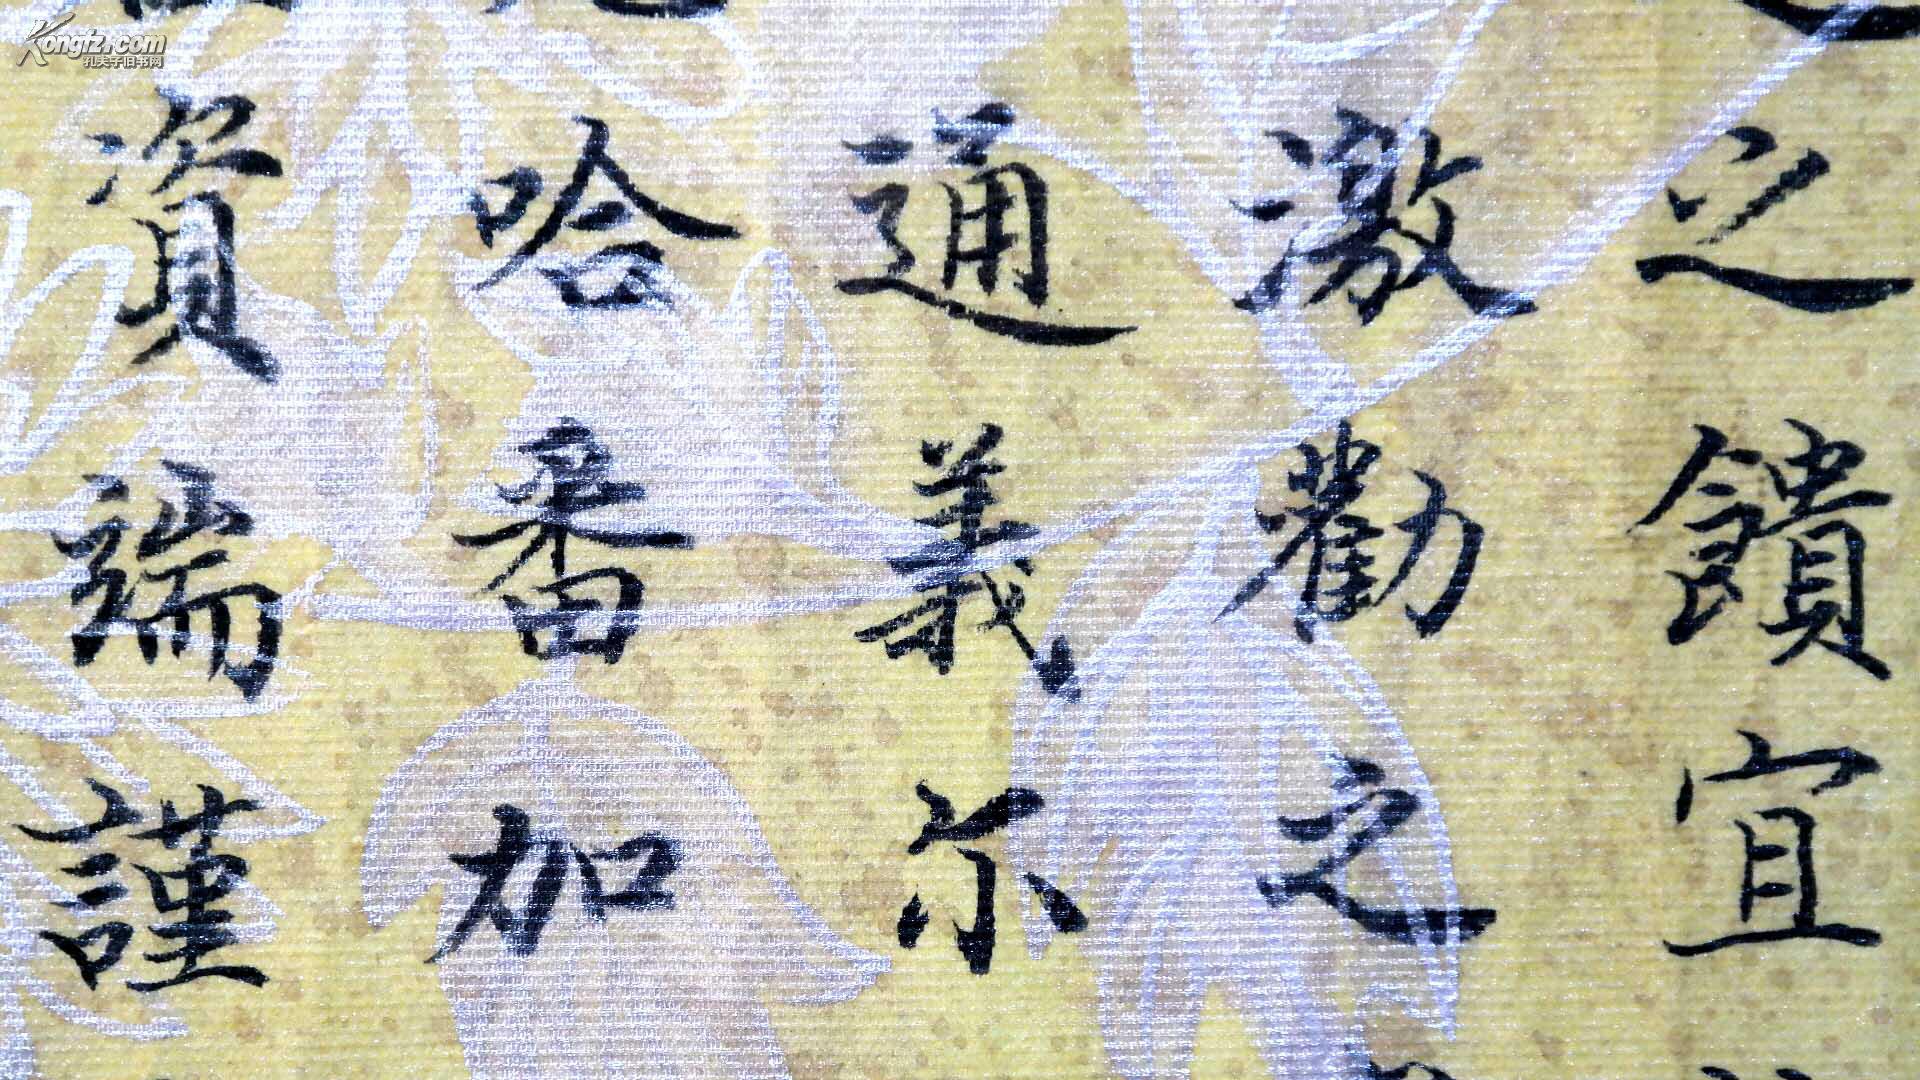 之饋宜
激勸之
通義尔
哈番加
資端謹
Kongfz.com
孔夫子旧书网